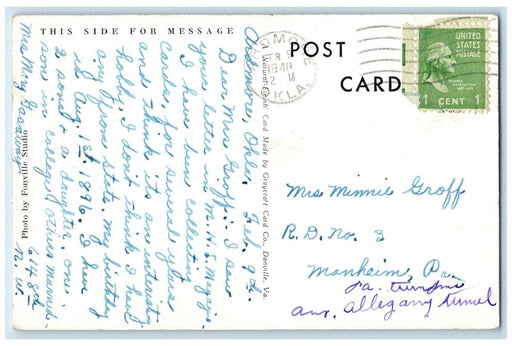 THIS SIDE FOR MESSAGE
Ardmore, Okla. Feb. 9th.
Dear Mrs Groff: I saw
your letter in M.H.S. Magz.
I have been collecting
cards, for several years
and think its an interesting
hobby, I don't think I have
any from state. my birthday
is Aug. 1st 1896. I have
2 sons & a daughter, one
son in college, others married.
614 8th
N.W.
Photo by Fonville Studio
A Natural Color Card Made by Graycraft Card Co., Danville, Va.
POST
CARD
FEB 9
1948
OKLA.
UNITED
STATES
POSTAGE
1 CENT 1
Mrs Minnie Groff
R.D. no. 3
Manheim, Pa.
Pa. turnpike
Allegany tunnel